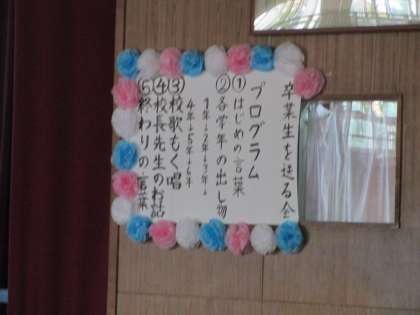 卒業生を送る会
プログラム
①はじめの言葉
②各学年の出し物
1年→2年→3年→
4年→5年→6年
③校歌もく唱
④校長先生のお話
⑤終わりの言葉